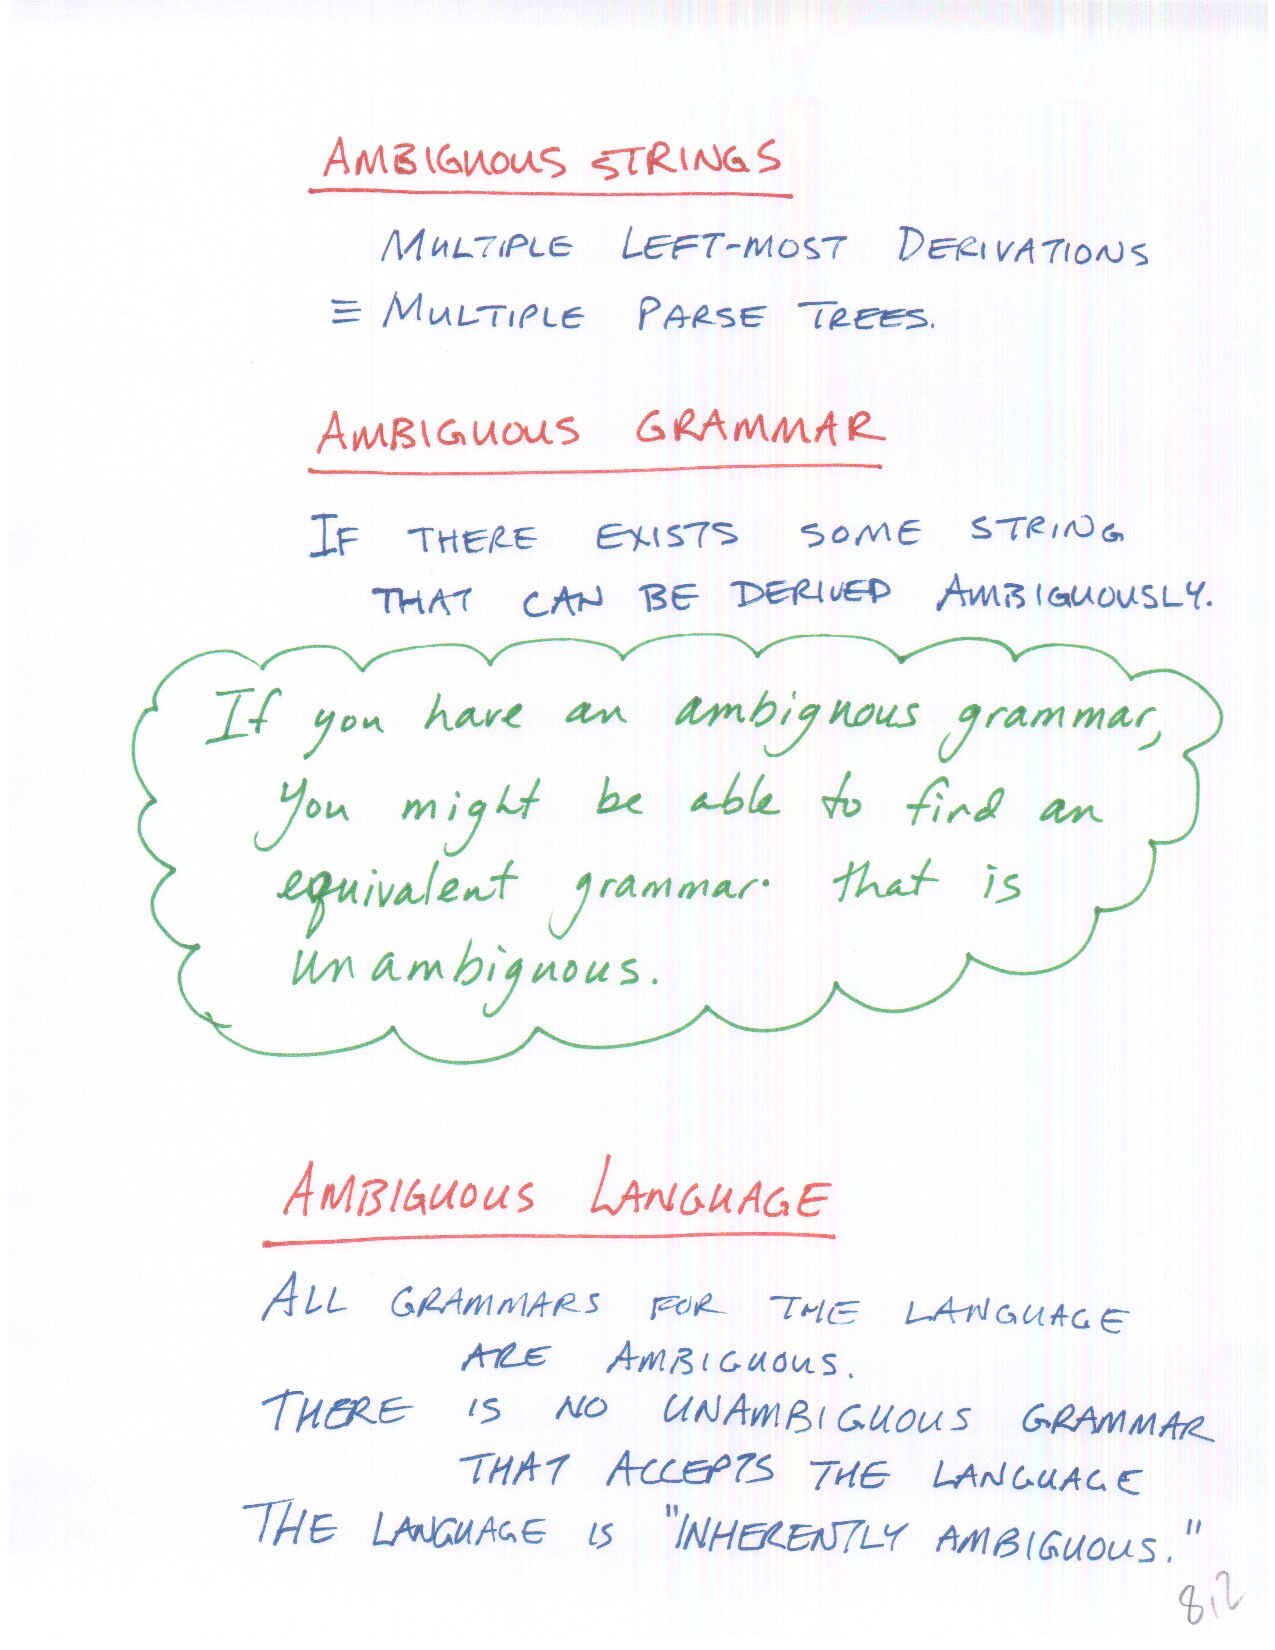 AMBIGUOUS STRINGS
MULTIPLE LEFT-MOST DERIVATIONS
≡ MULTIPLE PARSE TREES.
AMBIGUOUS GRAMMAR
IF THERE EXISTS SOME STRING
THAT CAN BE DERIVED AMBIGUOUSLY.
If you have an ambiguous grammar,
you might be able to find an
equivalent grammar that is
unambiguous.
AMBIGUOUS LANGUAGE
ALL GRAMMARS FOR THE LANGUAGE
ARE AMBIGUOUS.
THERE IS NO UNAMBIGUOUS GRAMMAR
THAT ACCEPTS THE LANGUAGE
THE LANGUAGE IS "INHERENTLY AMBIGUOUS."
8.2